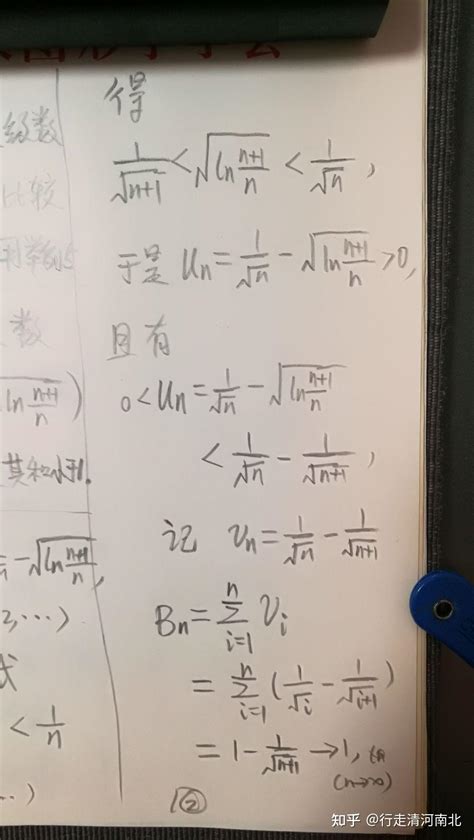 级数
比较
数
ln (n+1)/n)
其和小于1.
-√(ln (n+1)/n),
2,⋯)
式
< 1/n
⋯)
得
1/√(n+1) < √(ln (n+1)/n) < 1/√n ,
于是 Un = 1/√n - √(ln (n+1)/n) > 0,
且有
0 < Un = 1/√n - √(ln (n+1)/n)
< 1/√n - 1/√(n+1) ,
记 Vn = 1/√n - 1/√(n+1)
Bn = ∑_{i=1}^{n} Vi
= ∑_{i=1}^{n} (1/√i - 1/√(i+1))
= 1 - 1/√(n+1) → 1,
(n→∞)
②
知乎 @行走清河南北